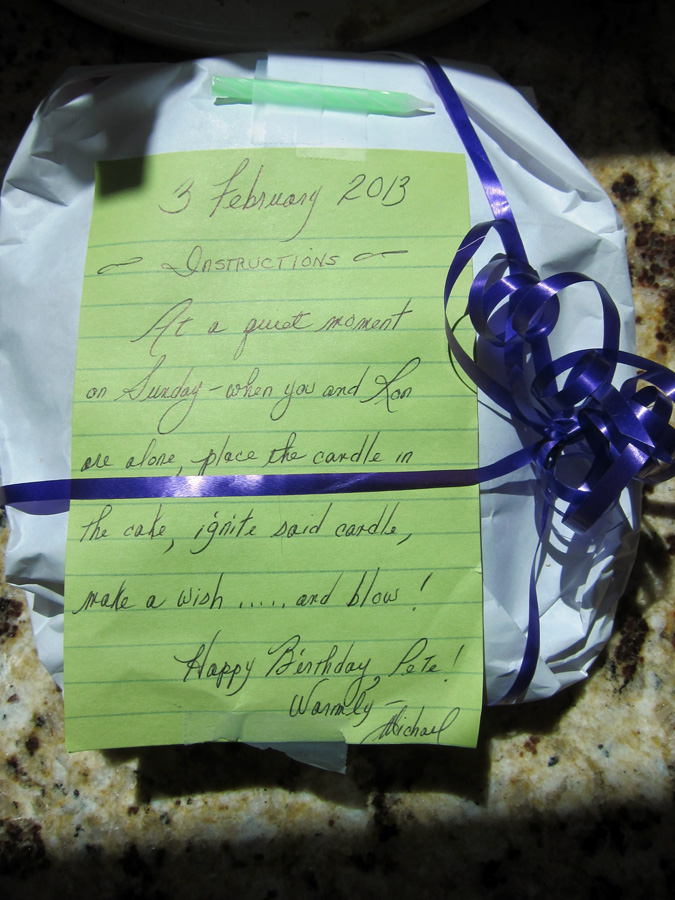 3 February 2013
~ Instructions ~
At a quiet moment
on Sunday - when you and Ron
are alone, place the candle in
the cake, ignite said candle,
make a wish ..... and blow!
Happy Birthday, Pete!
Warmly -
Michael